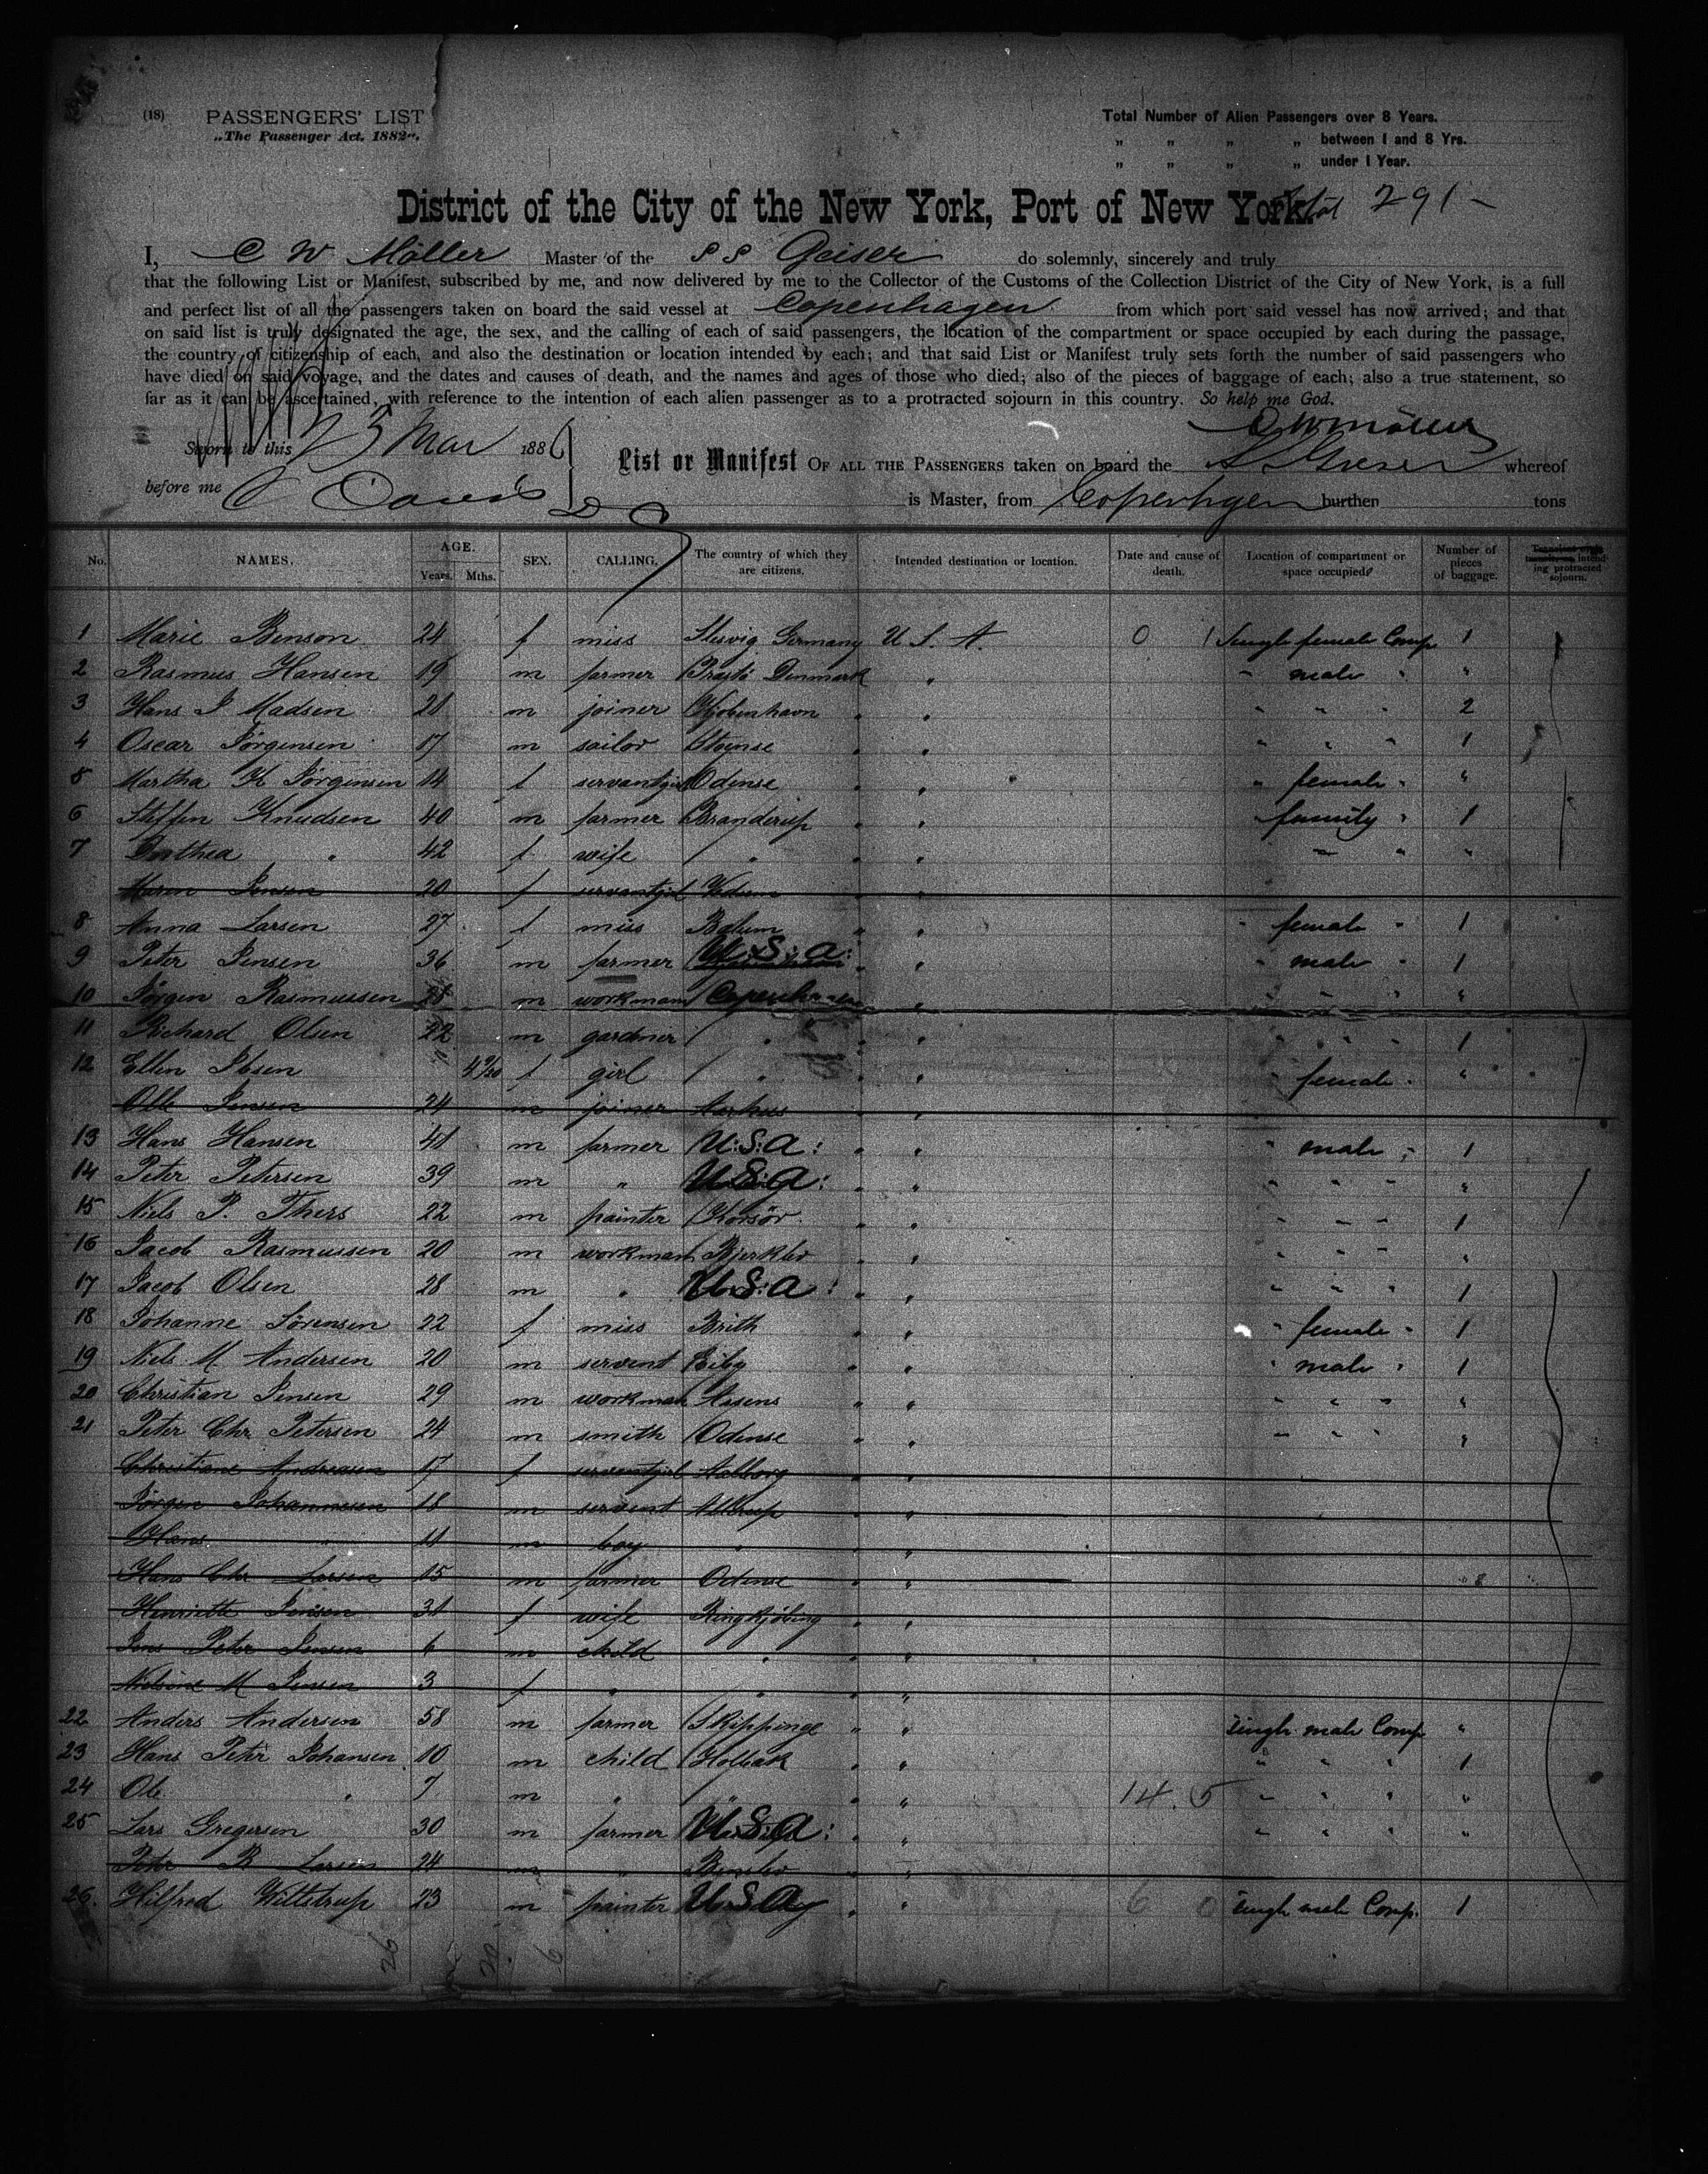 (18) PASSENGERS' LIST
„The Passenger Act. 1882".
Total Number of Alien Passengers over 8 Years.
„ „ „ „ between 1 and 8 Yrs.
„ „ „ „ under 1 Year.
District of the City of the New York, Port of New York. total 291 -
I, C W Möller Master of the S S Geiser do solemnly, sincerely and truly
that the following List or Manifest, subscribed by me, and now delivered by me to the Collector of the Customs of the Collection District of the City of New York, is a full
and perfect list of all the passengers taken on board the said vessel at Copenhagen from which port said vessel has now arrived; and that
on said list is truly designated the age, the sex, and the calling of each of said passengers, the location of the compartment or space occupied by each during the passage,
the country of citizenship of each, and also the destination or location intended by each; and that said List or Manifest truly sets forth the number of said passengers who
have died on said voyage, and the dates and causes of death, and the names and ages of those who died; also of the pieces of baggage of each; also a true statement, so
far as it can be ascertained, with reference to the intention of each alien passenger as to a protracted sojourn in this country. So help me God.
C W Möller
Sworn to this 23 Mar 1886
before me
List or Manifest OF ALL THE PASSENGERS taken on board the S S Geiser whereof
is Master, from Copenhagen burthen tons
No. NAMES. AGE. Years. Mths. SEX. CALLING. The country of which they are citizens. Intended destination or location. Date and cause of death. Location of compartment or space occupied. Number of pieces of baggage. intending protracted sojourn.
1 Marie Benson 24 f miss Slesvig Germany U. S. A. 0 1 Single female Comp 1
2 Rasmus Hansen 19 m farmer Prästö Denmark " " male " "
3 Hans P Madsen 21 m joiner Kjöbenhavn " " " " " 2
4 Oscar Jörgensen 17 m sailor " " " " " 1
5 Martha K Jörgensen 14 f servantgirl Odense " " " female " "
6 Steffen Knudsen 40 m farmer Branderup " " " family " 1
7 Dorthea " 42 f wife " " " " " "
Maren Jensen 20 f servantgirl " "
8 Anna Larsen 27 f miss " " " female " 1
9 Peter Jensen 36 m farmer U. S. a. " " " male " 1
10 Jörgen Rasmussen 28 m workman Copenhagen " " " " " "
11 Richard Olsen 22 m gardner " " " " " " 1
12 Ellen Ibsen f girl " " " " female " "
Ole Jensen 24 m joiner Aarhus " "
13 Hans Hansen 41 m farmer U. S. a. " " " male " 1
14 Peter Petersen 39 m " U S a " " " " " "
15 Niels P. Thers 22 m painter Korsör " " " " " 1
16 Jacob Rasmussen 20 m workman " " " " " "
17 Jacob Olsen 28 m " U. S. a " " " " " 1
18 Johanne Sörensen 22 f miss " " " female " 1
19 Niels M Andersen 20 m servent Eiby " " " male " 1
20 Christian Jensen 29 m workman Assens " " " " " "
21 Peter Chr. Petersen 24 m smith Odense " " " " " "
Christiane Andreasen 17 f serventgirl Aalborg " "
Jörgen Johannesen 18 m servent " "
Hans " 11 m boy " " "
Hans Chr Larsen 15 m farmer Odense " "
Henriette Jensen 31 f wife Ringkjöbing " "
Jens Peter Jensen 6 m child " " "
Nielsine M Jensen 3 f " " " "
22 Anders Andersen 58 m farmer Skippinge " " Single male Comp "
23 Hans Peter Johansen 10 m child Holbäk " " " " " 1
24 Ole " 7 m " " " " 14. 5 " " " "
25 Lars Gregersen 30 m farmer U. S. a. " " " " " "
Peter B Larsen 24 m " " "
26. Hilfred Wittstrup 23 m painter U S A " " 6 0 Single male Comp. 1
26 20. 6